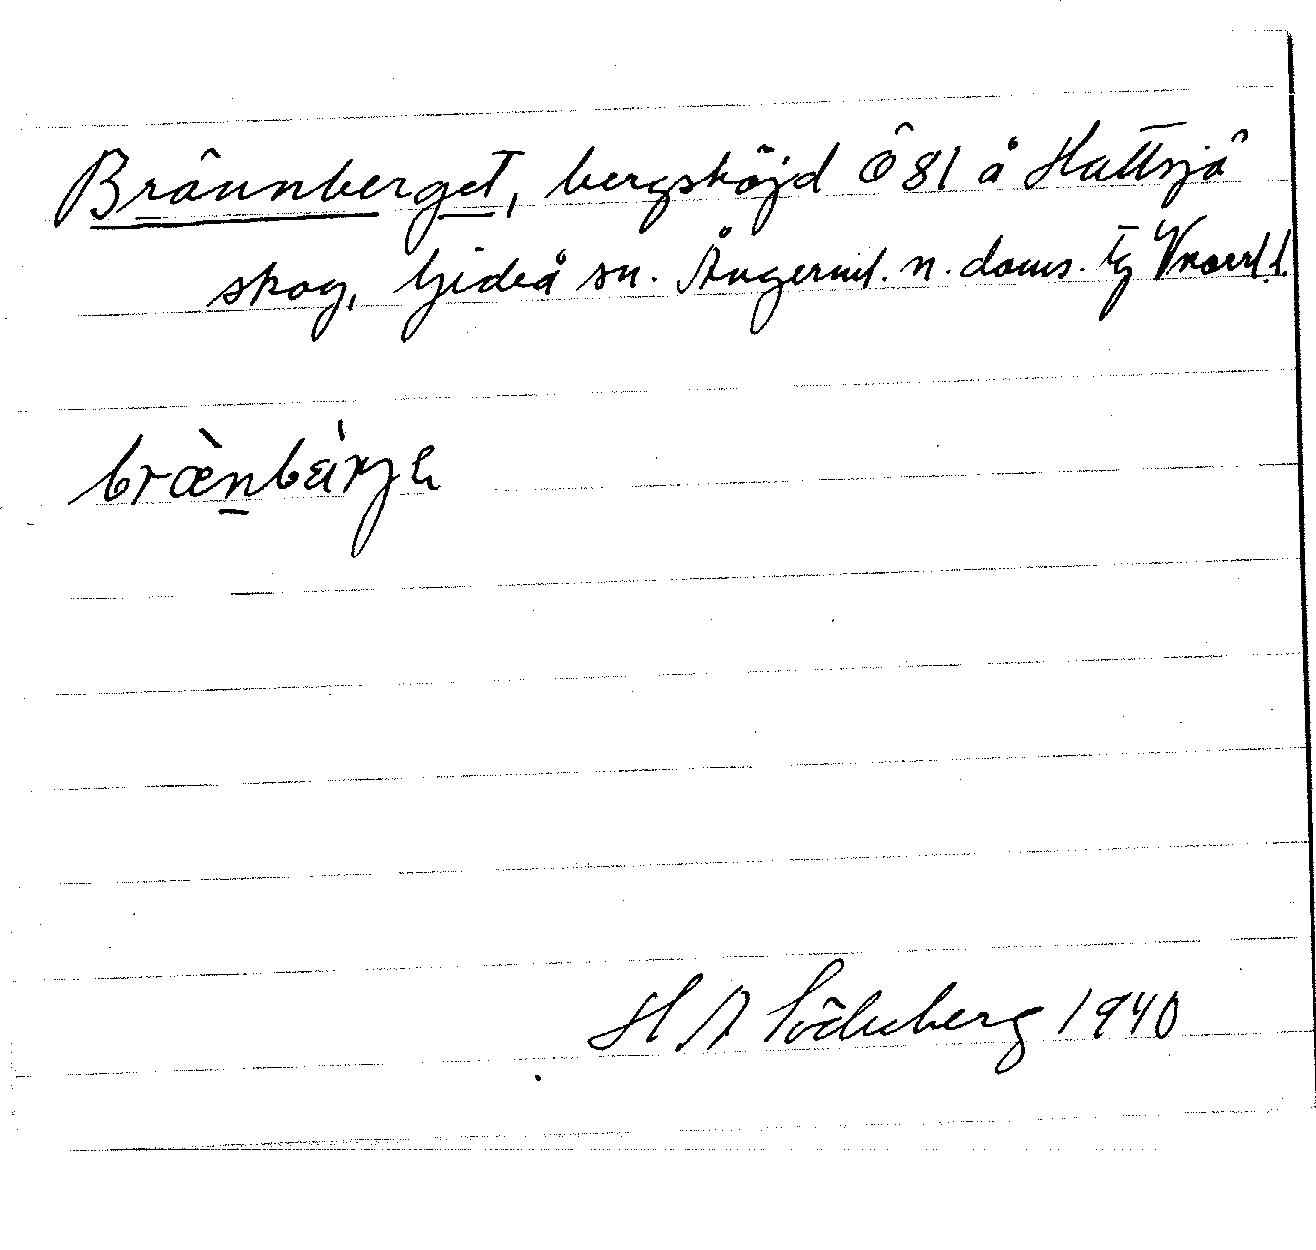 Brännberget, bergshöjd Ö 81 å Hattsjö
skog, Gideå sn. Ångerml. n. doms. tg Vnorrl l.
bræ̀nbærje
H A Söderberg 1940